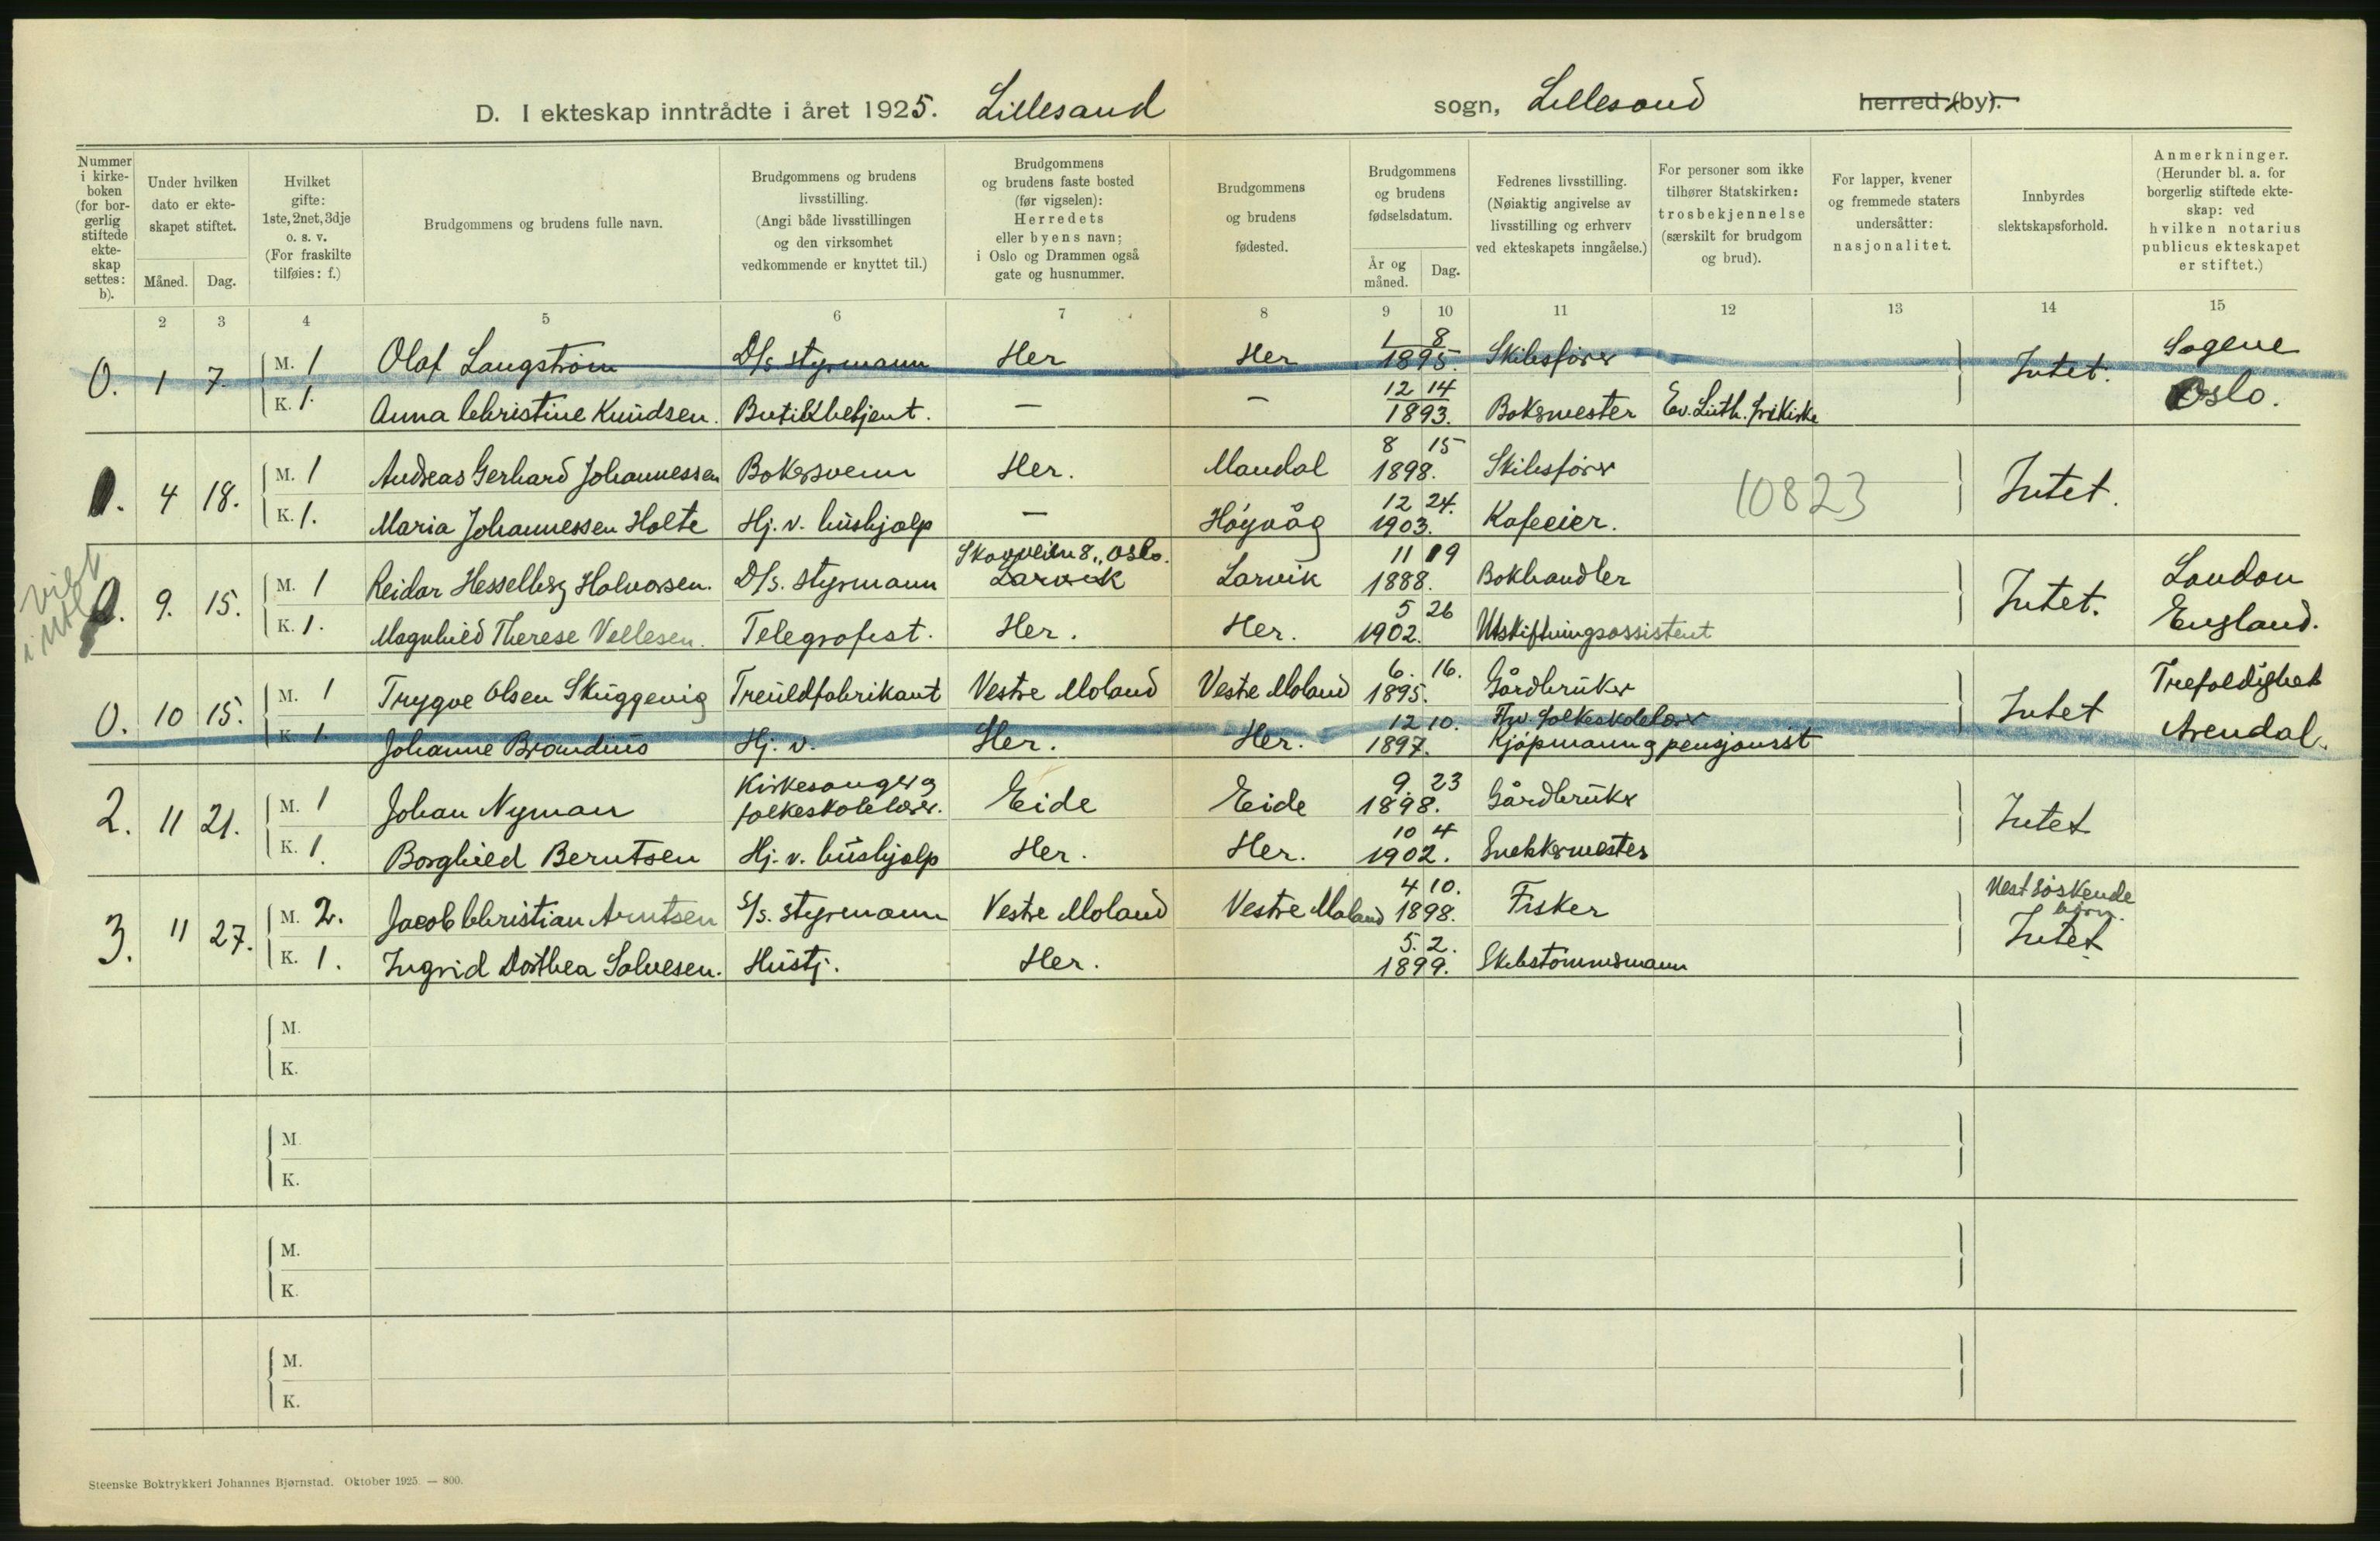 D. I ekteskap inntrådte i året 1925. Lillesand sogn, Lillesand herred (by).
Nummer i kirke-boken (for bor-gerlig stiftede ekte-skap settes: b).
Under hvilken dato er ekte-skapet stiftet.
Måned. Dag.
Hvilket gifte: 1ste, 2net, 3dje o. s. v. (For fraskilte tilføies: f.)
Brudgommens og brudens fulle navn.
Brudgommens og brudens livsstilling. (Angi både livsstillingen og den virksomhet vedkommende er knyttet til.)
Brudgommens og brudens faste bosted (før vigselen): Herredets eller byens navn; i Oslo og Drammen også gate og husnummer.
Brudgommens og brudens fødested.
Brudgommens og brudens fødselsdatum.
År og måned. Dag.
Fedrenes livsstilling. (Nøiaktig angivelse av livsstilling og erhverv ved ekteskapets inngåelse.)
For personer som ikke tilhører Statskirken: trosbekjennelse (særskilt for brudgom og brud).
For lapper, kvener og fremmede staters undersåtter: nasjonalitet.
Innbyrdes slektskapsforhold.
Anmerkninger. (Herunder bl. a. for borgerlig stiftede ekte-skap: ved hvilken notarius publicus ekteskapet er stiftet.)
2 3 4 5 6 7 8 9 10 11 12 13 14 15
0. 1 7. M. 1 Olaf Langstrøm D/s styrmann Her Her 1 8 1895. Skibsfører Intet. Sagene
K. 1. Anna Christine Knudsen. Butikkbetjent. — — 12 14 1893. Bakermester Ev. Luth. frikirke Oslo.
1. 4 18. M. 1 Andreas Gerhard Johannessen Bakersvenn Her. Mandal 8 15 1898. Skibsfører 10823 Intet.
K. 1. Maria Johannessen Holte Hj. v. hushjelp — Høyvåg 12 24. 1903. Kafeeier.
0. 9. 15. M. 1 Reidar Hesselberg Halvorsen. D/s. styrmann Skovveien 8, Oslo. Larvik Larvik 11 19 1888. Bokhandler Intet. London
K. 1. Magnhild Therese Vellesen. Telegrafist. Her. Her. 5 26 1902. Utskiftningsassistent England.
0. 10 15. M. 1 Trygve Olsen Skuggevig Treuldfabrikant Vestre Moland Vestre Moland 6. 16. 1895. Gårdbruker Intet Trefoldighet
K. 1. Johanne Brandius Hj. v. Her. Her. 12 10. 1897. Fhv. folkeskolelærer Kjøpmann og pensjonist Arendal.
2. 11 21. M. 1 Johan Nyman Kirkesanger og folkeskolelærer. Eide Eide 9. 23 1898. Gårdbruker Intet
K. 1. Borghild Berntsen Hj. v. hushjelp Her. Her. 10 4 1902. Snekkermester
3. 11 27. M. 2. Jacob Christian Arntsen S/s. styrmann Vestre Moland Vestre Moland 4 10. 1898. Fisker Nestsøskende børn.
K. 1. Ingrid Dorthea Salvesen. Hustj. Her. 5. 2. 1899. Skibstømmermann Intet
M.
K.
M.
K.
M.
K.
M.
K.
Steenske Boktrykkeri Johannes Bjørnstad. Oktober 1925. — 800.